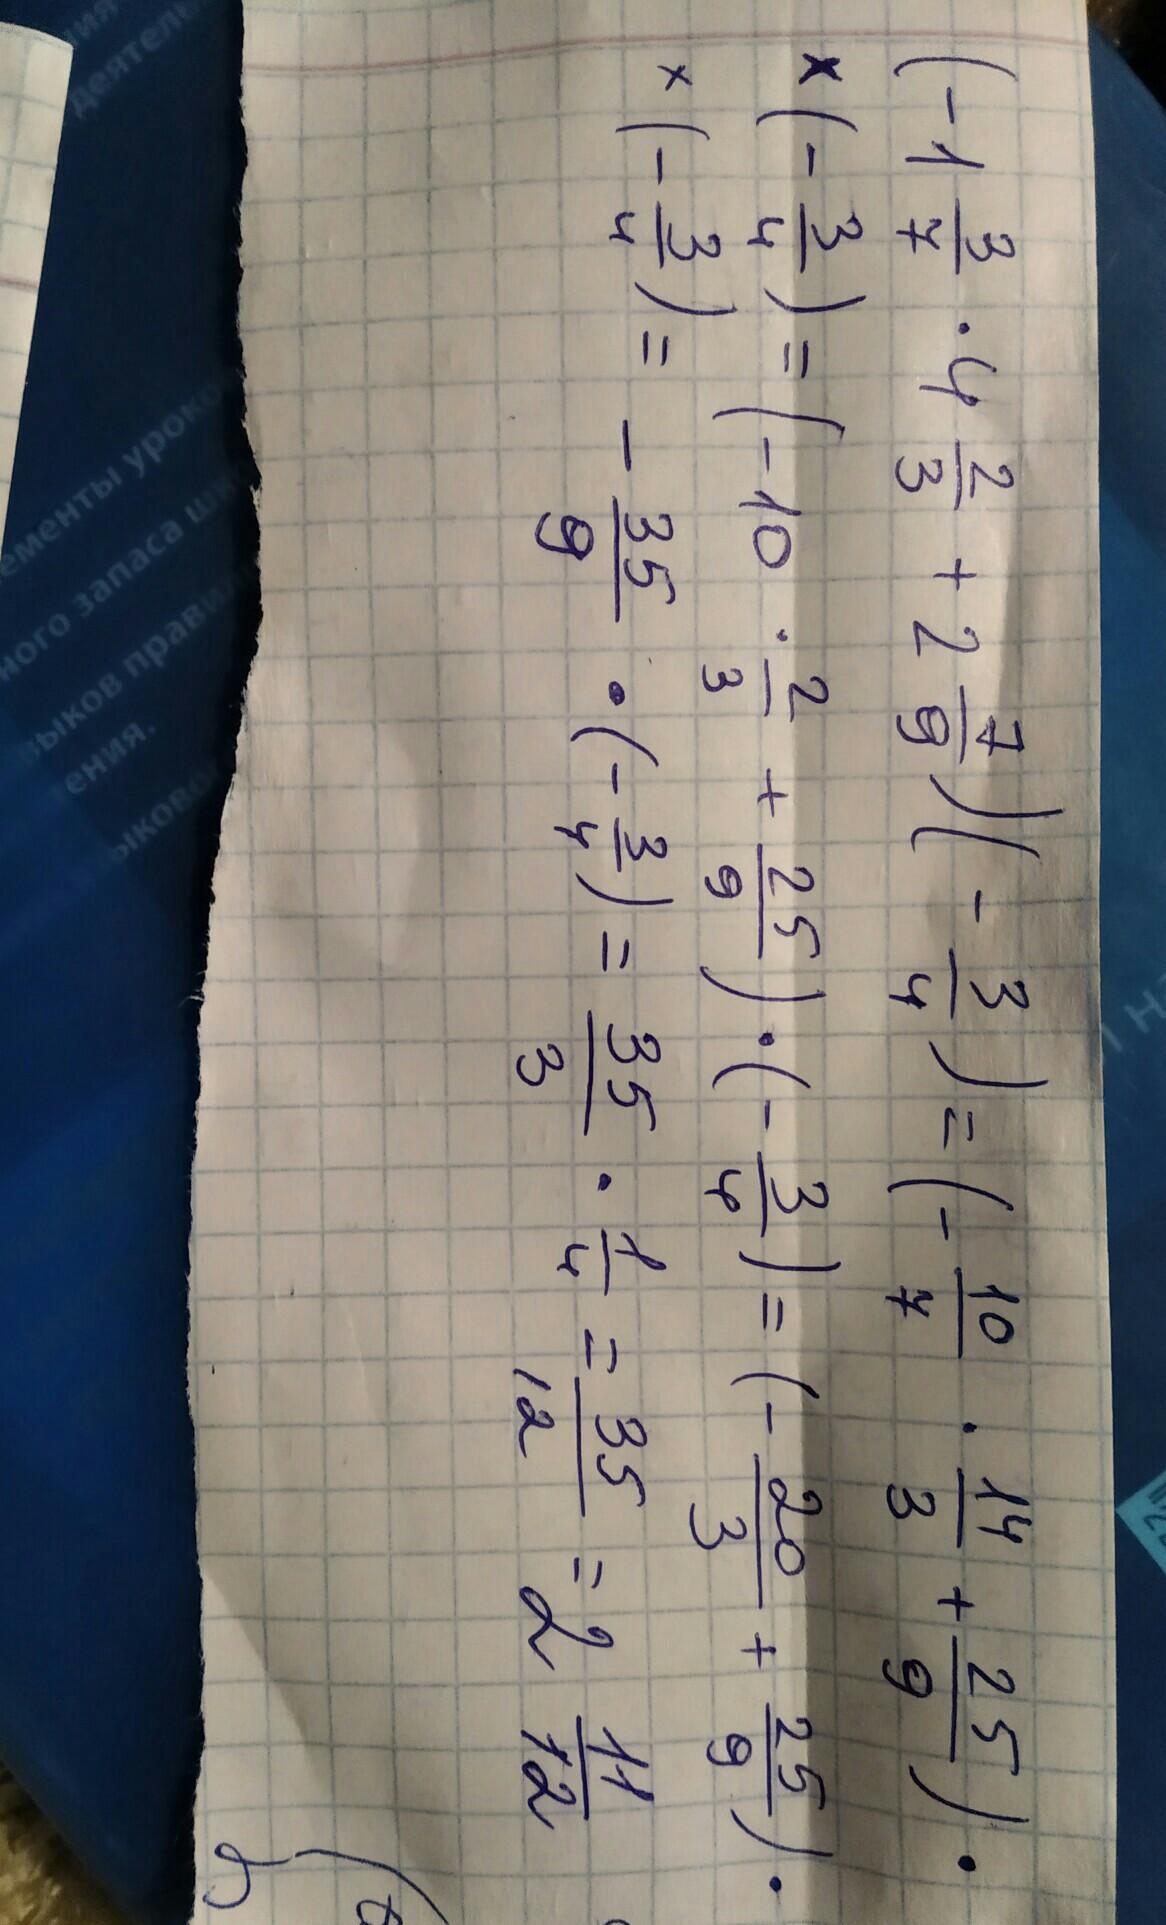 (-1 3/7 · 4 2/3 + 2 7/9)(- 3/4) = (- 10/7 · 14/3 + 25/9) ·
× (- 3/4) = (-10 · 2/3 + 25/9) · (- 3/4) = (- 20/3 + 25/9) ·
× (- 3/4) = - 35/9 · (- 3/4) = 35/3 · 1/4 = 35/12 = 2 11/12
деятель
ементы уроко
ного запаса ш
зыков прави
тения.
ыково